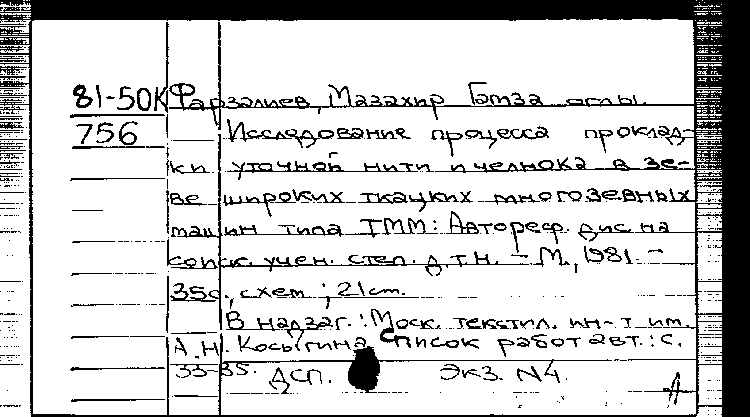 81-50К Фарзалиев, Мазахир Гамза оглы.
756 Исследование процесса проклад-
ки уточной нити и челнока в зе-
ве широких ткацких многозевных
машин типа ТММ: Автореф. дис. на
соиск. учен. степ. д.т.н. - М., 1981. -
35с., схем ; 21 cm.
В надзаг.: Моск. текстил. ин-т им.
А.Н. Косыгина Список работ авт.: с.
33-35. ДСП. Экз. N4.
А